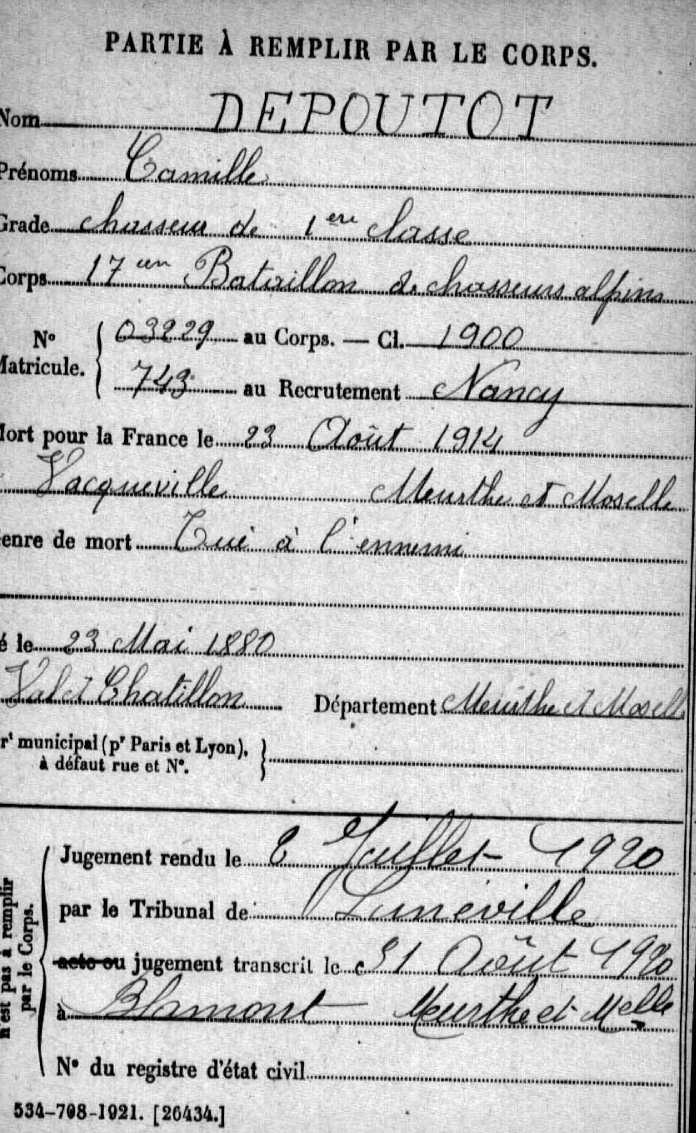 PARTIE À REMPLIR PAR LE CORPS.
Nom DEPOUTOT
Prénoms Camille
Grade chasseur de 1ere classe
Corps 17em Bataillon de chasseurs alpins
N° Matricule. { 03229 au Corps. — Cl. 1900
743 au Recrutement Nancy
Mort pour la France le 23 Août 1914
Vacqueville Meurthe et Moselle
enre de mort Tué à l'ennemi
é le 23 Mai 1880
Val et Chatillon Département Meurthe et Moselle
rt municipal (pr Paris et Lyon), }
à défaut rue et N°.
n'est pas à remplir
par le Corps.
Jugement rendu le 2 Juillet 1920
par le Tribunal de Lunéville
acte ou jugement transcrit le 31 Août 1920
à Blamont Meurthe et Melle
N° du registre d'état civil
534-708-1921. [26434.]